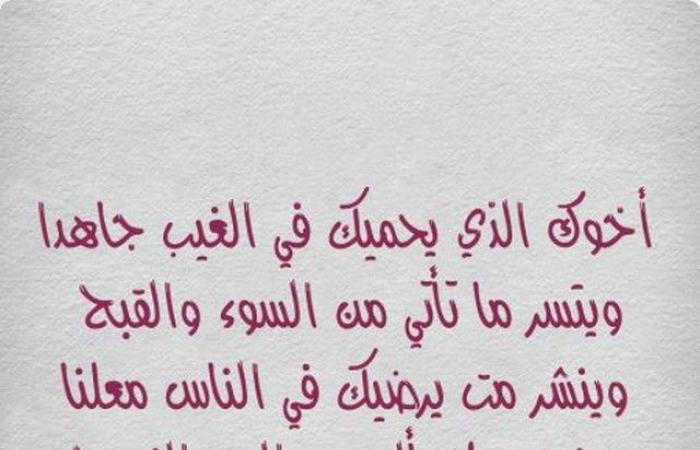 أخوك الذي يحميك في الغيب جاهدا
ويتسر ما تأتي من السوء والقبح
وينشر مت يرضيك في الناس معلنا